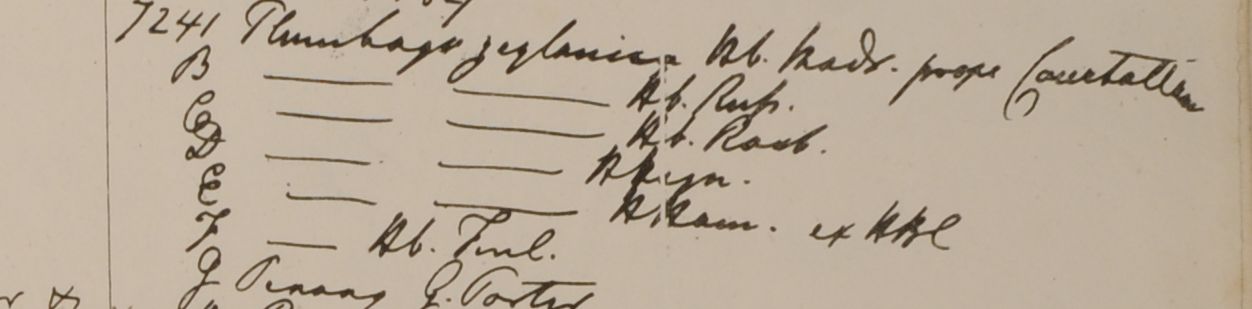 7241 Plumbago zeylanica Hb. Madr. prope Courtallam
B — — Hb. Russ.
C — — Hb. Roxb.
D — — H
E — — H. Ham. ex HBC
F — Hb. Finl.
G Penang G. Porter